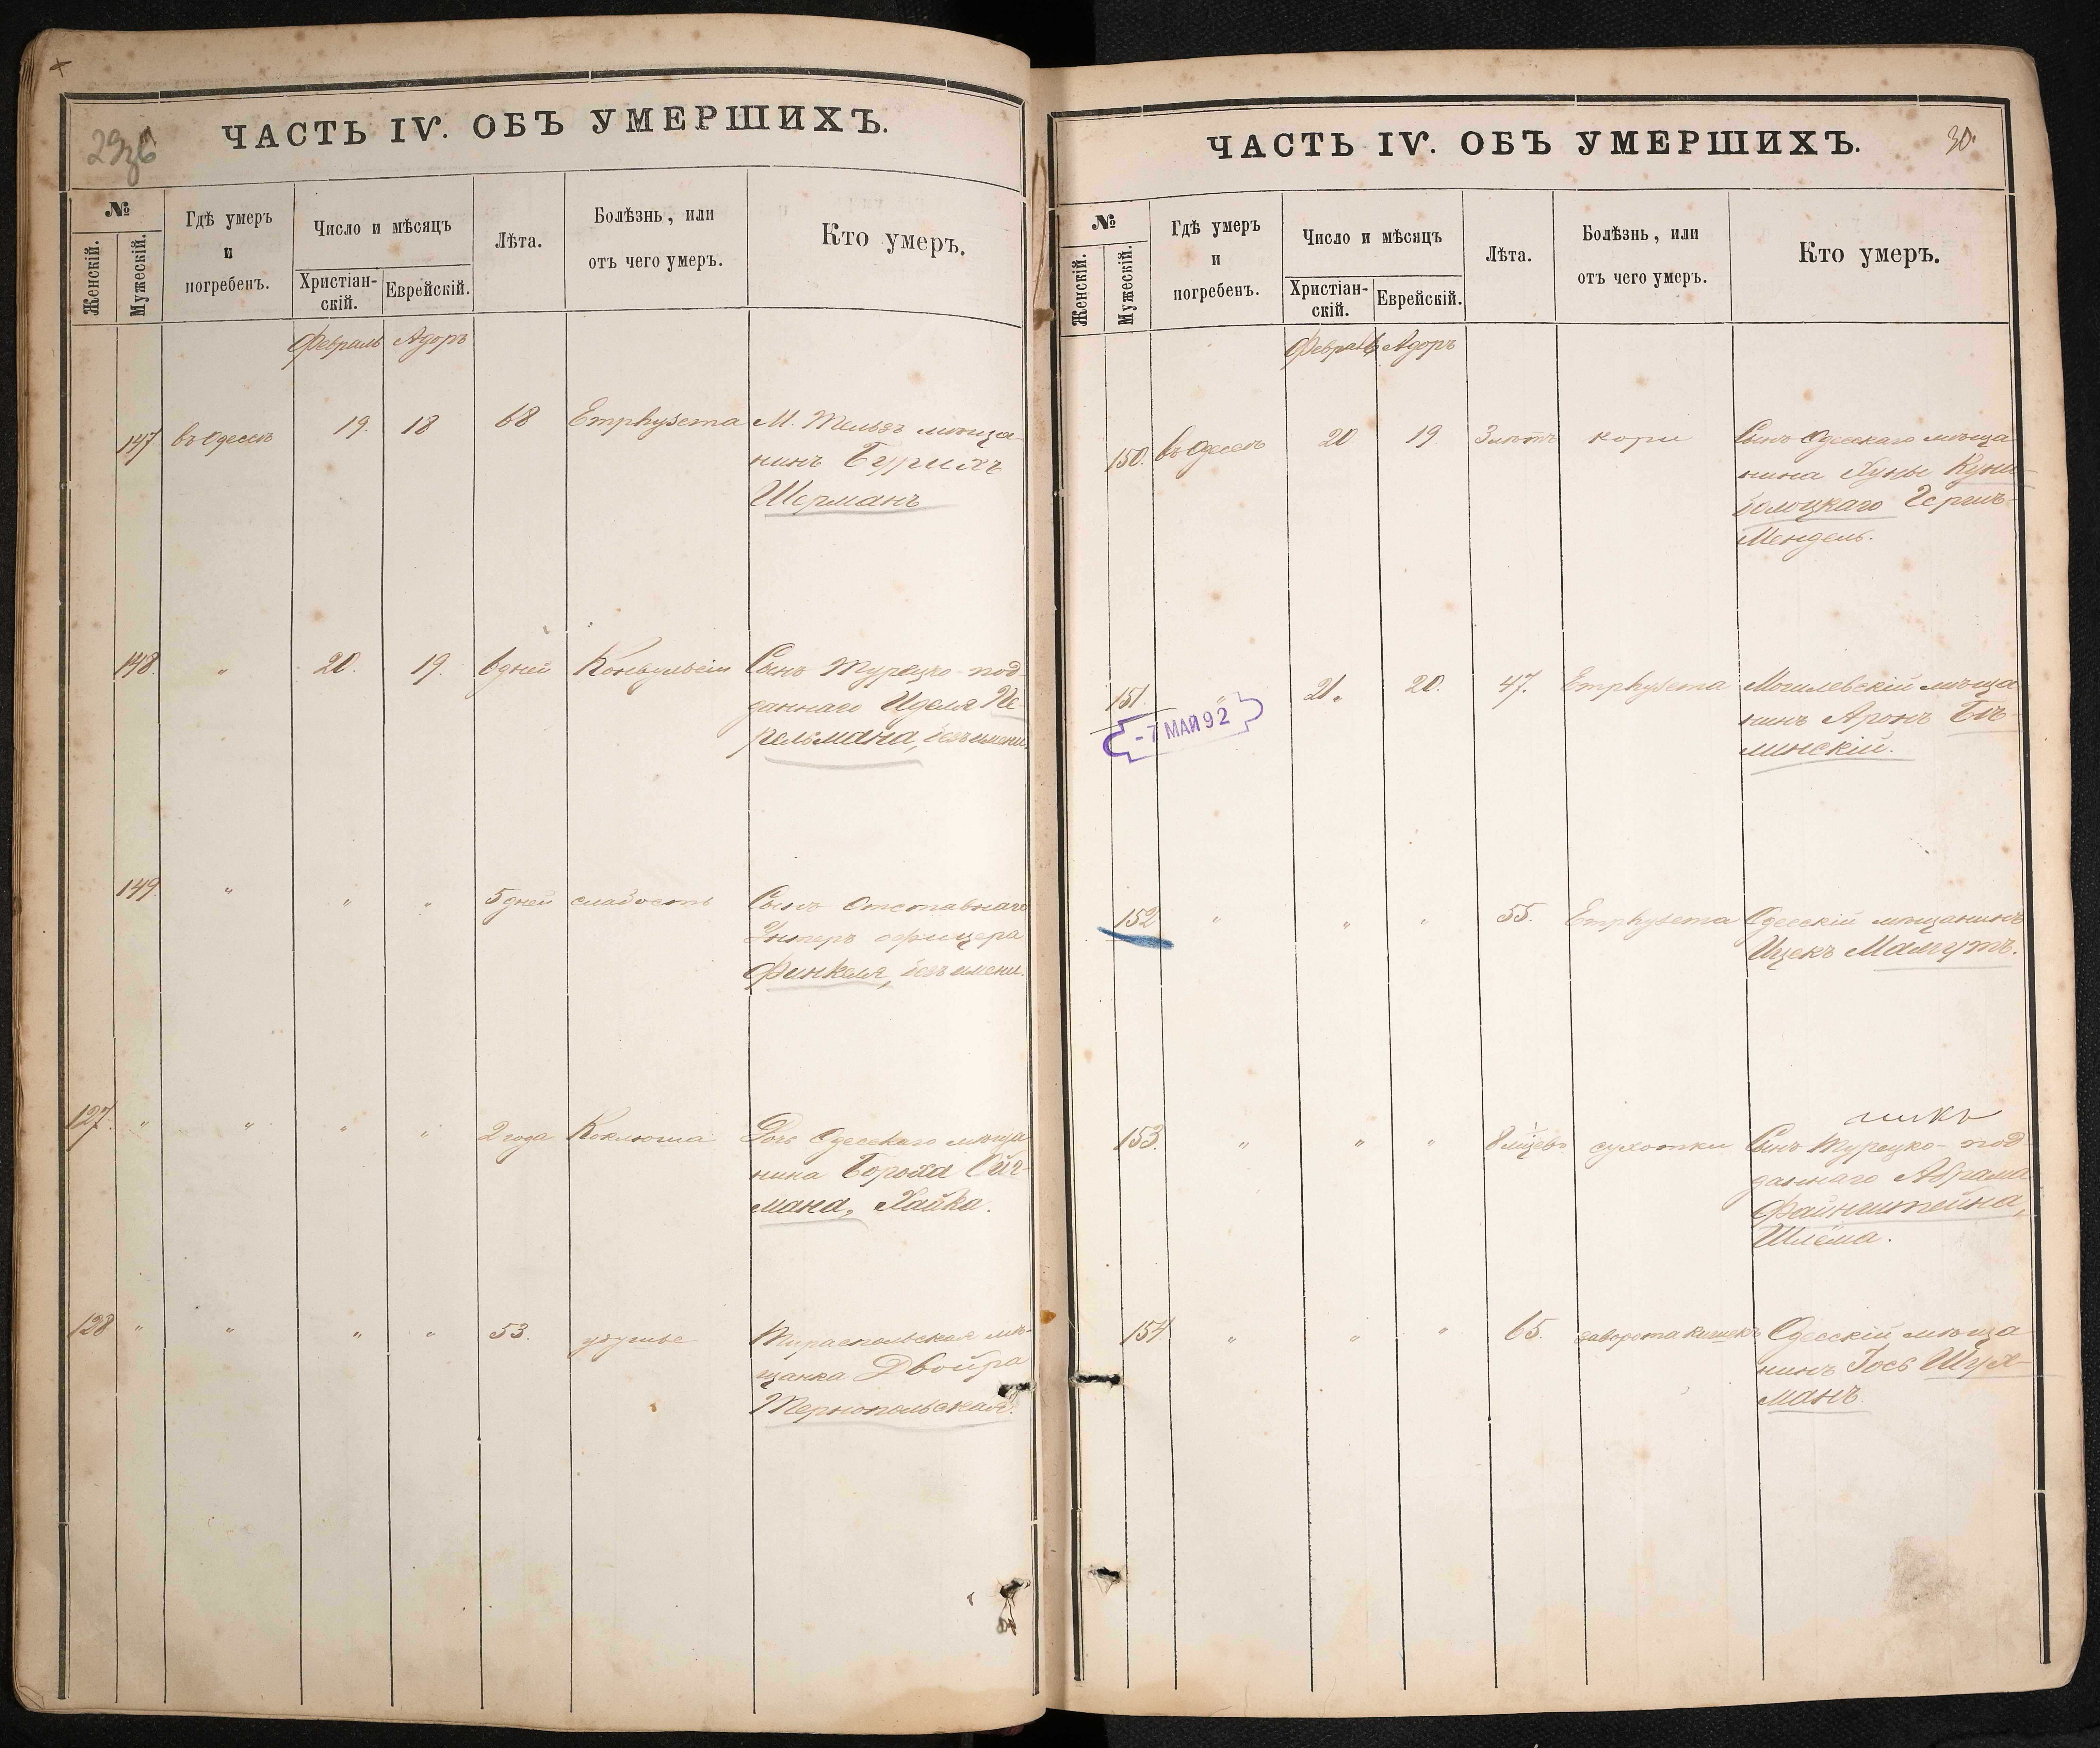 29об
ЧАСТЬ IV. ОБЪ УМЕРШИХЪ.
№
Женскій.
Мужескій.
Гдѣ умеръ
и
погребенъ.
Число и мѣсяцъ
Христіан-
скій.
Еврейскій.
Лѣта.
Болѣзнь, или
отъ чего умеръ.
Кто умеръ.
Февраль Адоръ
147 въ Одессѣ 19. 18 68 Emphysema М. Тельзъ мѣща-
нинъ
Шерманъ
148. " 20. 19. 6 дней Конвульсіи Сынъ Турецко-под-
даннаго Иделя Пе-
рельмана, безъ имени.
149. " " " 5 дней слабость Сынъ Отставнаго
Унтеръ офицера
Финкеля, безъ имени.
127. " " " " 2 года Коклюша Дочь Одесскаго мѣща
нина Бороха
мана, Хайка.
128 " " " " 53. удушье Тираспольская мѣ-
щанка Двойра
Тернопольская.
ЧАСТЬ IV. ОБЪ УМЕРШИХЪ.
30.
№
Женскій.
Мужескій.
Гдѣ умеръ
и
погребенъ.
Число и мѣсяцъ
Христіан-
скій.
Еврейскій.
Лѣта.
Болѣзнь, или
отъ чего умеръ.
Кто умеръ.
Февраль Адоръ
150. въ Одессѣ 20 19 3 лѣтъ кори Сынъ Одесскаго мѣща
нина
Гершъ-
Мендель.
151. " 21. 20. 47. Emphysema Могилевскій мѣща
нинъ Аронъ Бѣ-
линскій.
-7 МАЙ 92
152 " " " 55. Emphysema Одесскій мѣщанинъ
Ицекъ Мамутъ.
153. " " " 8 мѣцевъ сухотки Сынъ Турецко-под
даннаго Абрама
Файнштейна,
Шлема.
154 " " " 65. заворота кишекъ Одесскій мѣща
нинъ Іось Шух-
манъ.